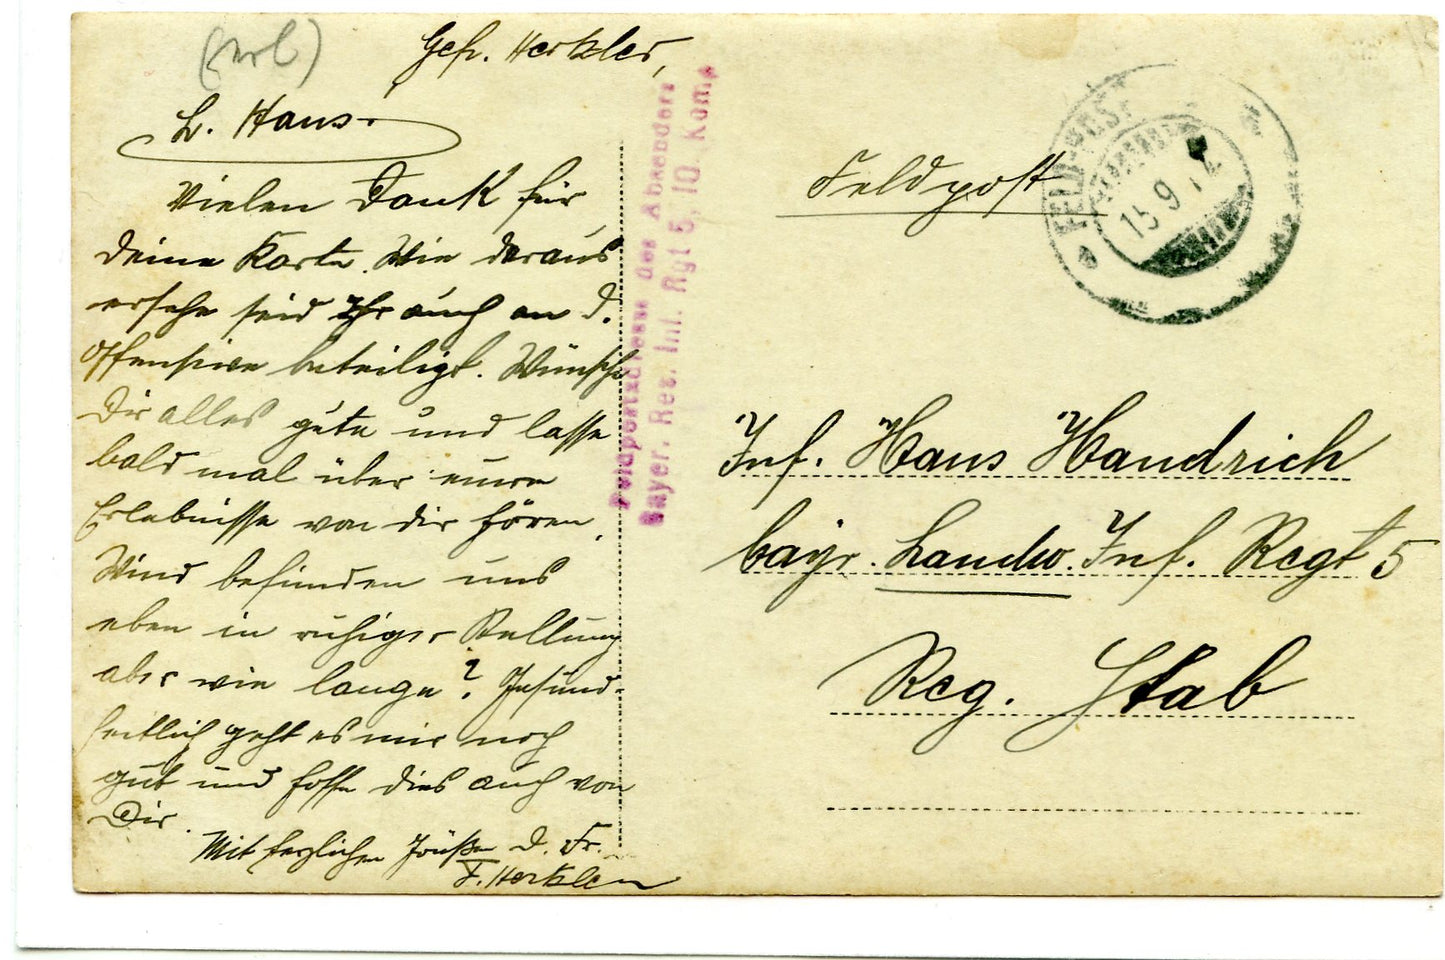 Gefr. Herkler,
L. Hans.
Vielen Dank für
deine Karte. Wie daraus
ersehe seid Ihr auch an d.
Offensive beteiligt. Wünsche
Dir alles gute und lasse
bald mal über eure
Erlebnisse von dir hören,
Wind befinden uns
eben in ruhiger Stellung
aber wie lange? Gesund-
heitlich geht es mir noch
gut und hoffe dies auch von
Dir.
Mit herzlichen Grüßen D. Fr.
F. Herkler
Feldpostadresse des Absenders
Bayer. Res. Inf. Rgt 5, 10. Komp.
Feldpost
FELD-POST
15 9 17
Inf. Hans Handrich
bayr. Landw. Inf. Regt 5
Reg. Stab